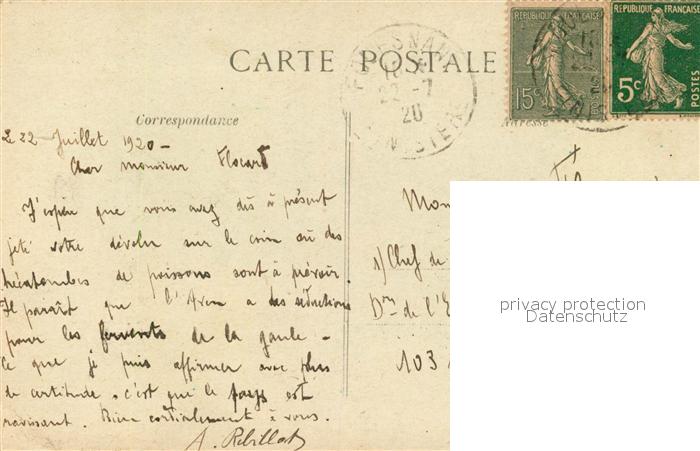 CARTE POSTALE
RÉPUBLIQUE FRANÇAISE
15c
RÉPUBLIQUE FRANÇAISE
5c
POSTES
22 -7
20
FINISTERE
Correspondance
Adresse
Le 22 Juillet 1920 -
Cher monsieur Flocard
J'espère que vous avez dès à présent
jeté votre dévolu sur le coin où des
hécatombes de poissons sont à prévoir
Il paraît que l'Aven a des séductions
pour les fervents de la gaule -
Ce que je puis affirmer avec plus
de certitude, c'est que le pays est
ravissant. Bien cordialement à vous.
A. Rebillat
Mon
Chef de
Don de l'E
103
privacy protection
Datenschutz